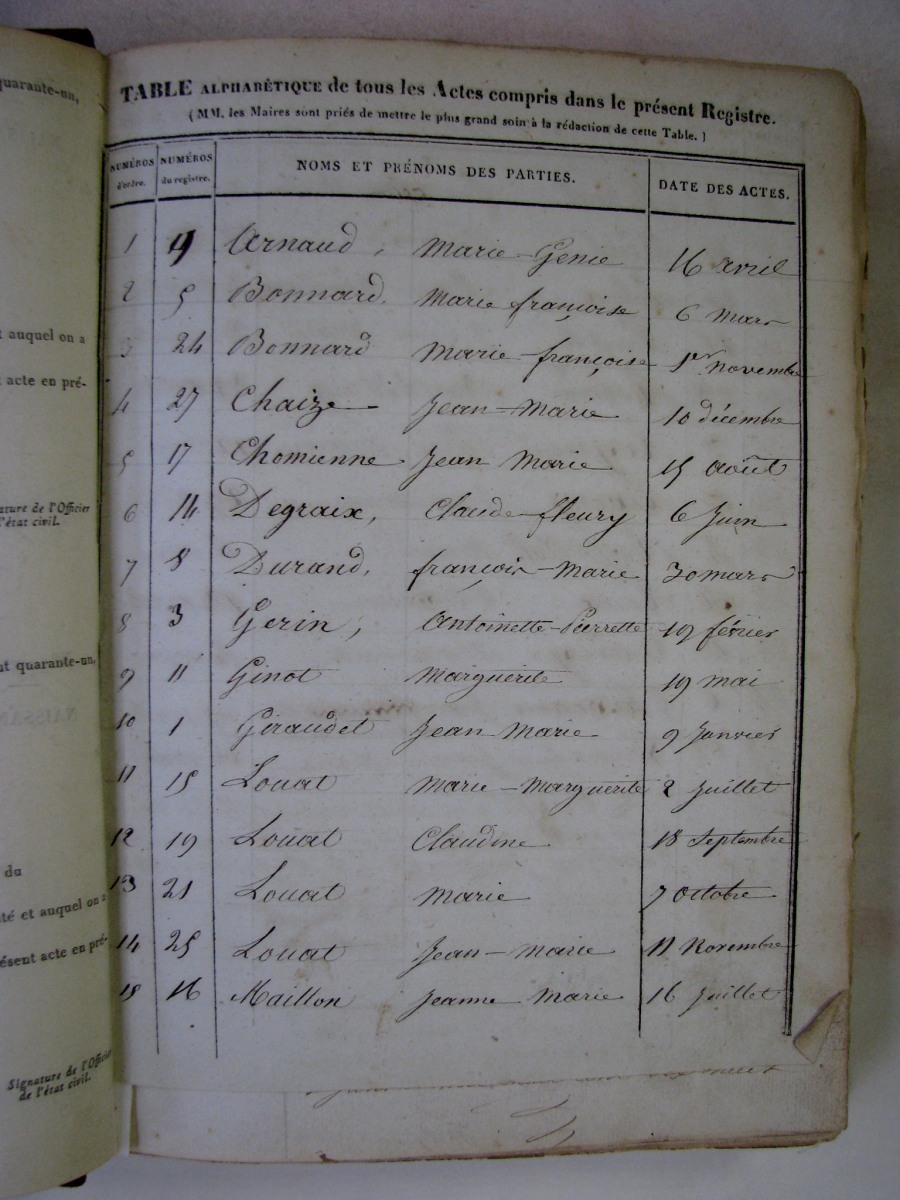 quarante-un,
t auquel on a
t acte en pré-
ature de l'Officier
l'état civil.
nt quarante-un,
du
té et auquel on a
ésent acte en pré-
Signature de l'Officier
de l'état civil.
TABLE ALPHABÉTIQUE de tous les Actes compris dans le présent Registre.
(MM. les Maires sont priés de mettre le plus grand soin à la rédaction de cette Table.)
NUMÉROS d'ordre. NUMÉROS du registre. NOMS ET PRÉNOMS DES PARTIES. DATE DES ACTES.
1 4 Arnaud, Marie-Génie 16 avril
2 5 Bonnard, Marie françoise 6 Mars
3 24 Bonnard Marie-françoise 1er novembre
4 27 Chaize Jean-Marie 10 décembre
5 17 Chomienne Jean Marie 15 août
6 14 Degraix, Claude fleury 6 Juin
7 8 Durand, françois-Marie 30 mars
8 3 Gerin, Antoinette-Pierrette 19 février
9 11 Ginot Marguerite 19 mai
10 1 Giraudet Jean Marie 9 Janvier
11 15 Louat Marie-Marguerite 2 Juillet
12 19 Louat Claudine 18 Septembre
13 21 Louat Marie 7 octobre
14 25 Louat Jean-Marie 11 Novembre
15 16 Maillon Jeanne Marie 16 Juillet